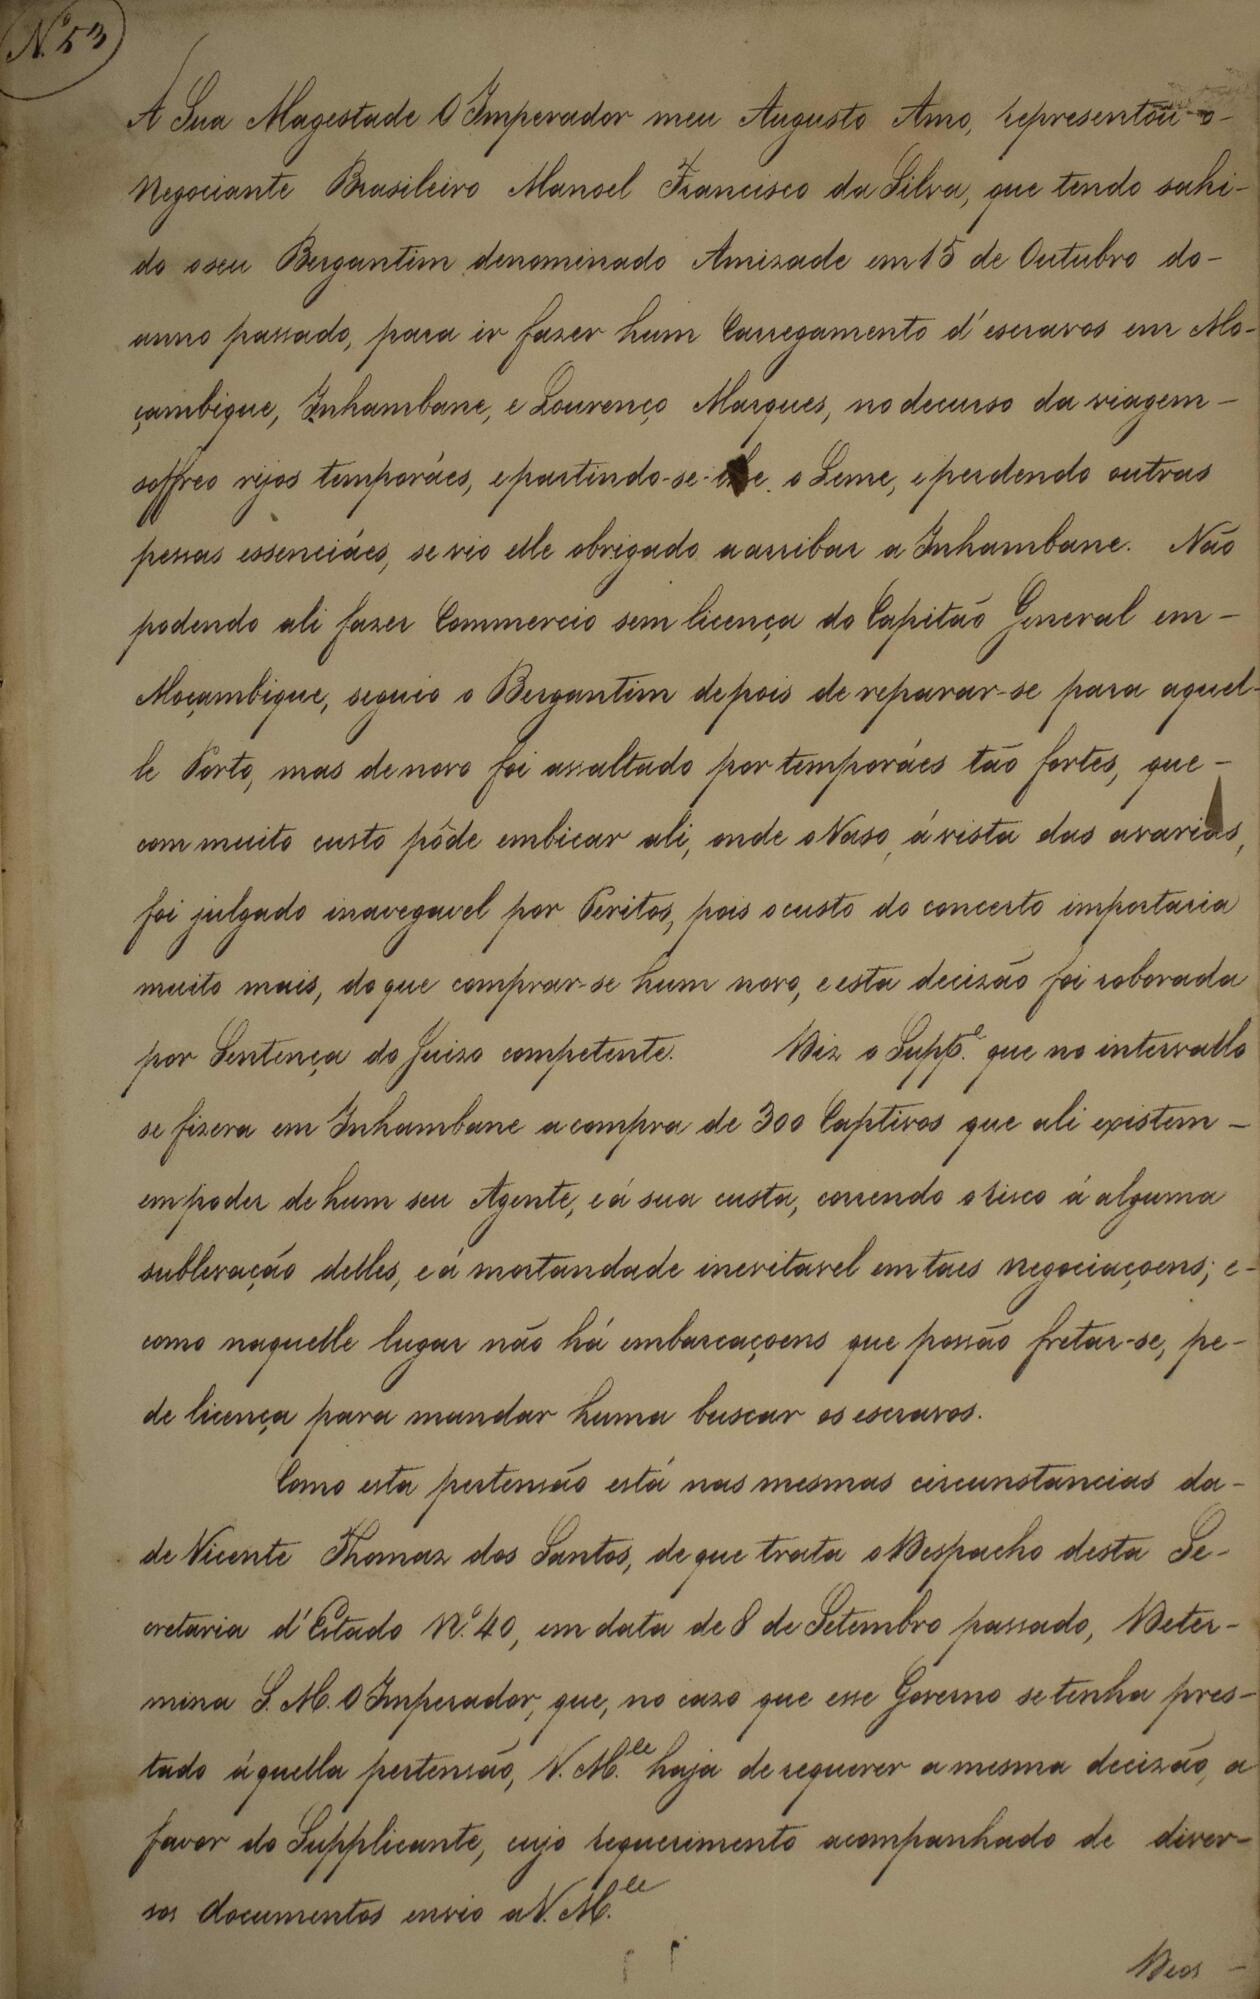 Nº 53
A Sua Magestade O Imperador meu Augusto Amo, representou o-
Negociante Brasileiro Manoel Francisco da Silva, que tendo sahi-
do o seu Bergantim denominado Amizade em 15 de Outubro do-
anno passado, para ir fazer hum Carregamento d'escravos em Mo-
çambique, Inhambane, e Lourenço Marques, no decurso da viagem-
soffreo rijos temporáes, e partindo-se-lhe o Leme, e perdendo outras
pessas essenciáes, se vio elle obrigado a arribar a Inhambane. Não
podendo ali fazer Commercio sem licença do Capitão General em-
Moçambique, seguio o Bergantim depois de reparar-se para aquel-
le Porto, mas de novo foi assaltado por temporáes tão fortes, que-
com muito custo pôde embicar ali, onde o Vaso, á vista das avarias,
foi julgado inavegavel por Peritos, pois o custo do concerto importaria
muito mais, do que comprar-se hum novo, e esta decizão foi roborada
por Sentença do Juizo competente. Diz o Suppe. que no intervallo
se fizera em Inhambane a compra de 300 Captivos que ali existem-
em poder de hum seu Agente, e á sua custa, correndo o risco á alguma
sublevação delles, e á mortandade inevitavel em taes negociaçoens; e-
como naquelle lugar não há embarcaçoens que possão fretar-se, pe-
de licença para mandar huma buscar os escravos.
Como esta pertensão está nas mesmas circunstancias da-
de Vicente Thomaz dos Santos, de que trata o Despacho desta Se-
cretaria d'Estado Nº. 40, em data de 8 de Setembro passado, Deter-
mina S. M. O Imperador, que, no cazo que esse Governo se tenha pres-
tado áquella pertensão, V. M.ce haja de requerer a mesma decizão, a
favor do Supplicante, cujo requerimento acompanhado de diver-
sos documentos envio a V. M.ce
Deos-